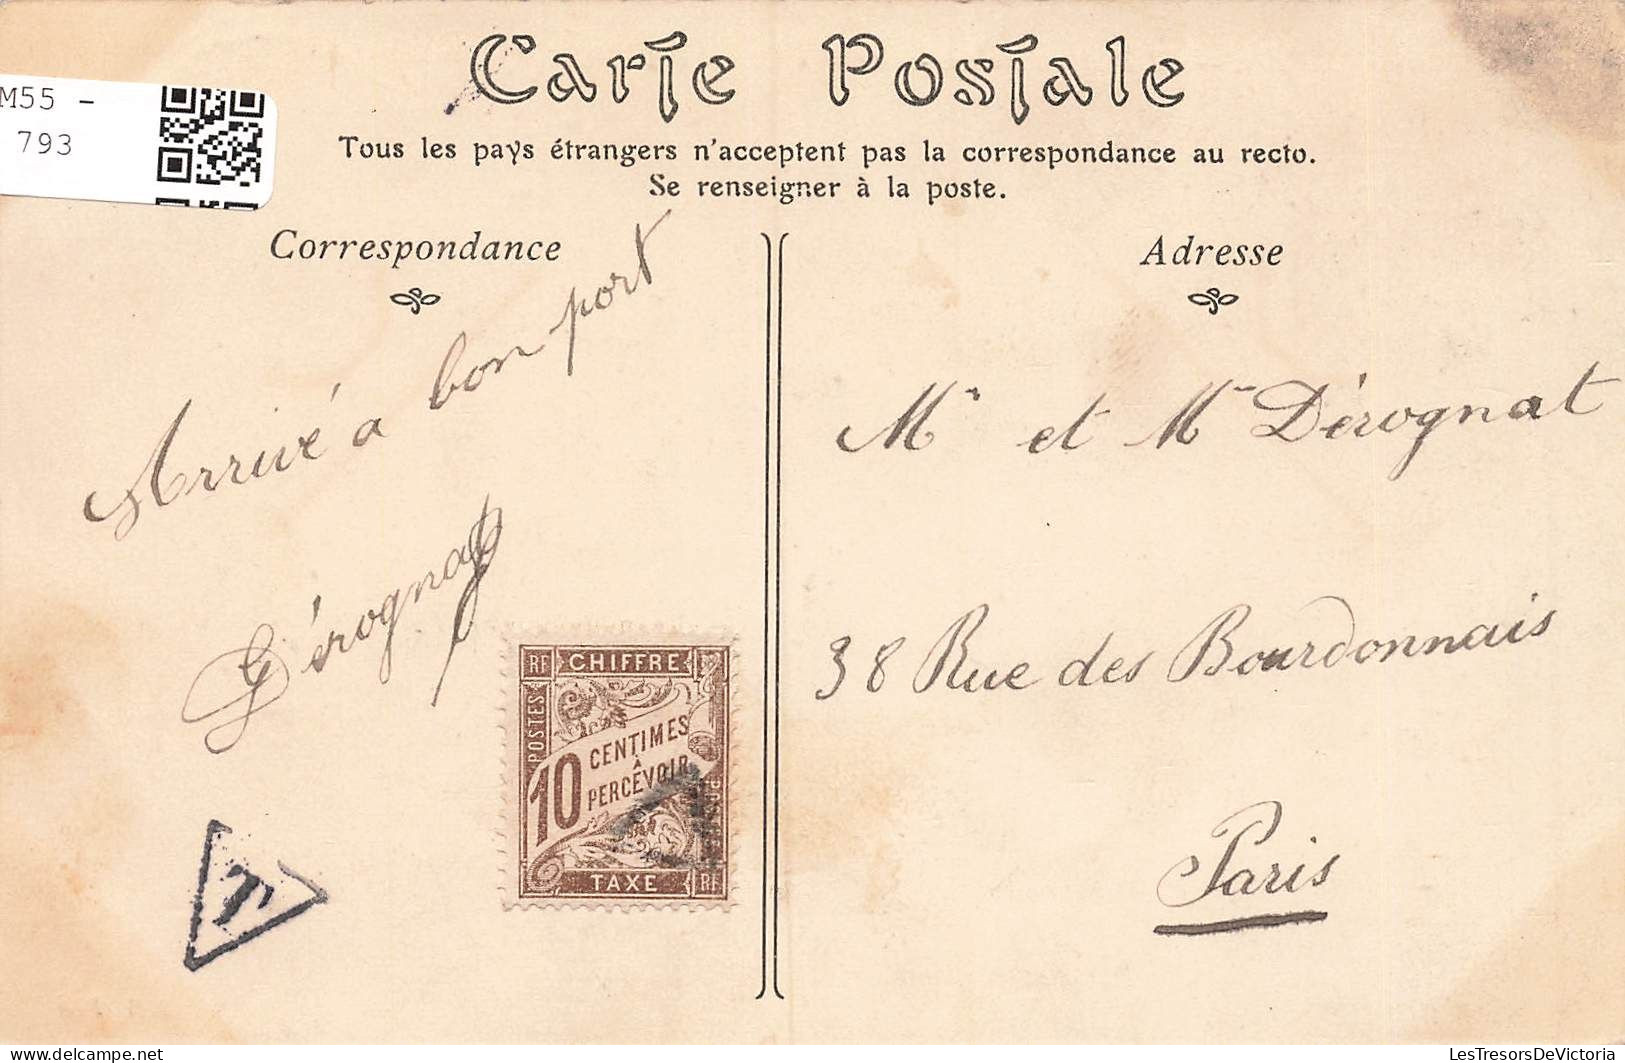 Carte Postale
Tous les pays étrangers n'acceptent pas la correspondance au recto.
Se renseigner à la poste.
M55 -
793
Correspondance
Adresse
Arrivé a bon port
Dérognat
Mr et Mme Dérognat
38 Rue des Bourdonnais
Paris
RF CHIFFRE
POSTES
10 CENTIMES
À
PERCEVOIR
TAXE RF
T
LesTresorsDeVictoria
delcampe.net